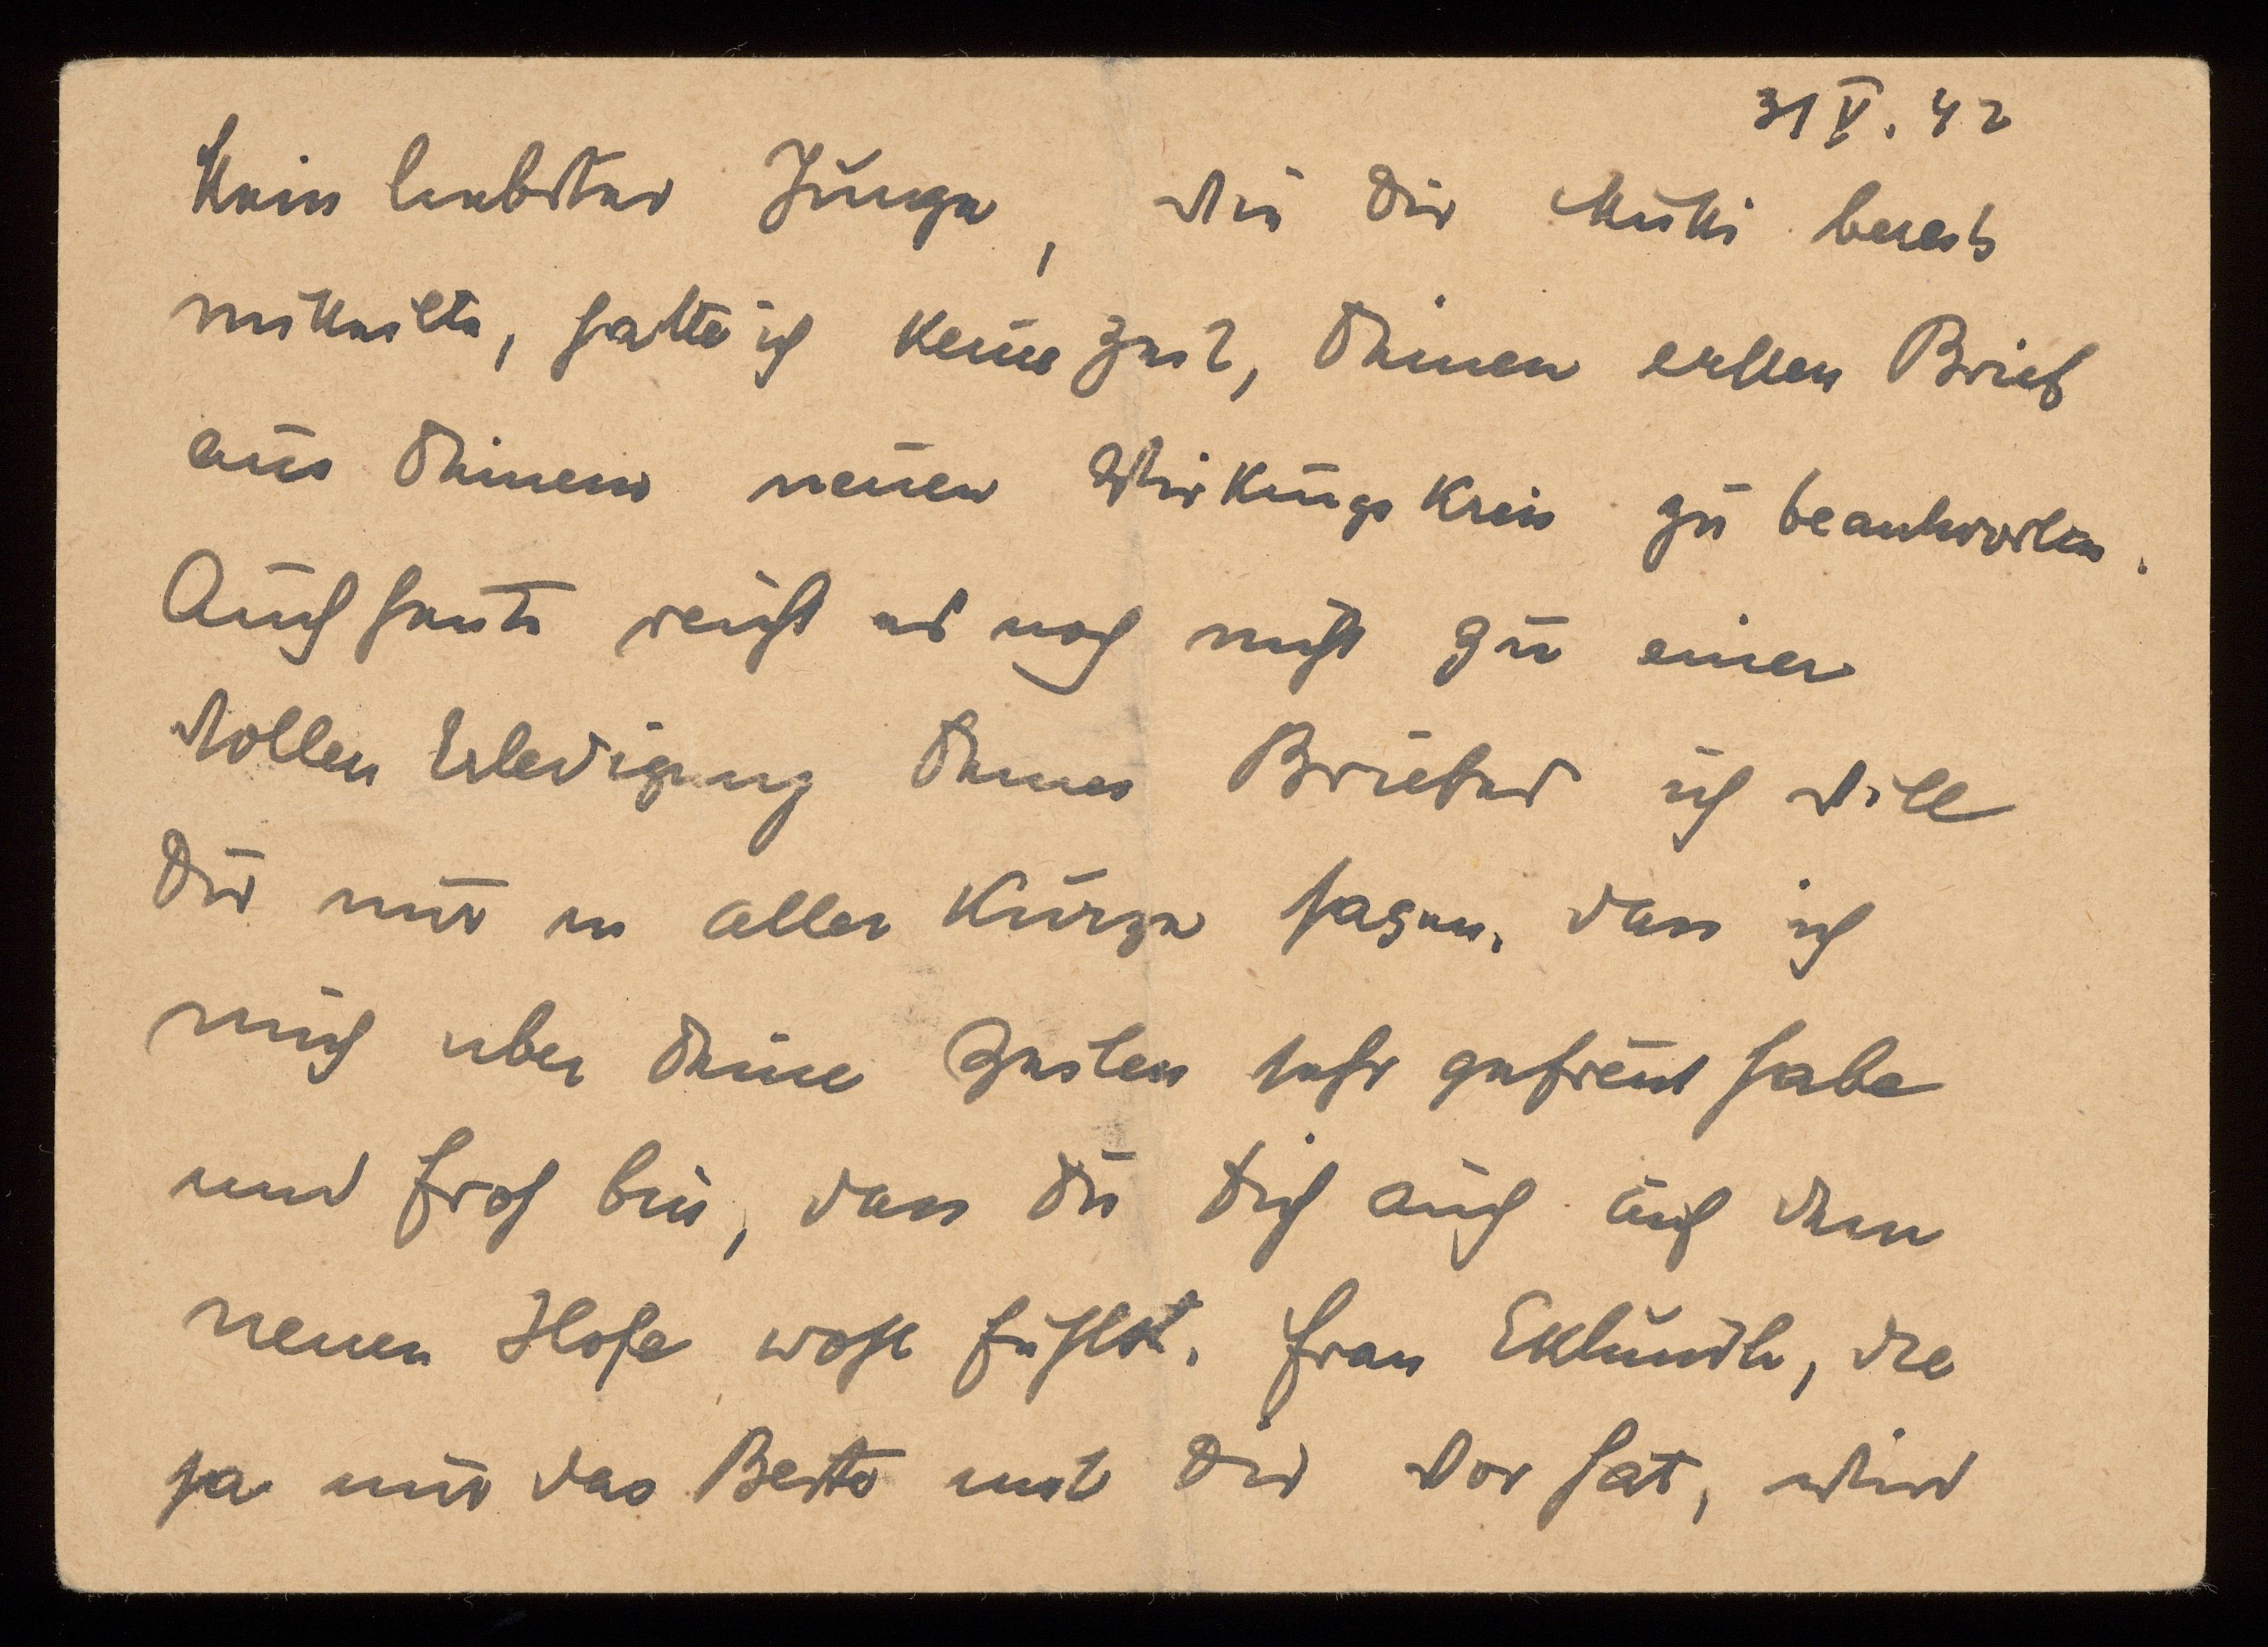 31 V. 42
Mein liebster Junge, wie Dir Mutti bereits
mitteilte, hatte ich keine Zeit, Deinen ersten Brief
aus Deinem neuen Wirkungskreis zu beantworten.
Auch heute reicht es noch nicht zu einer
vollen Erledigung Deines Briefes ich will
Dir nur in aller Kürze sagen, dass ich
mich über Deine Zeilen sehr gefreut habe
und froh bin, dass Du Dich auch auf dem
neuen Hofe wohl fühlst. Frau Eklundh, die
ja nur das Beste mit Dir vor hat, wird